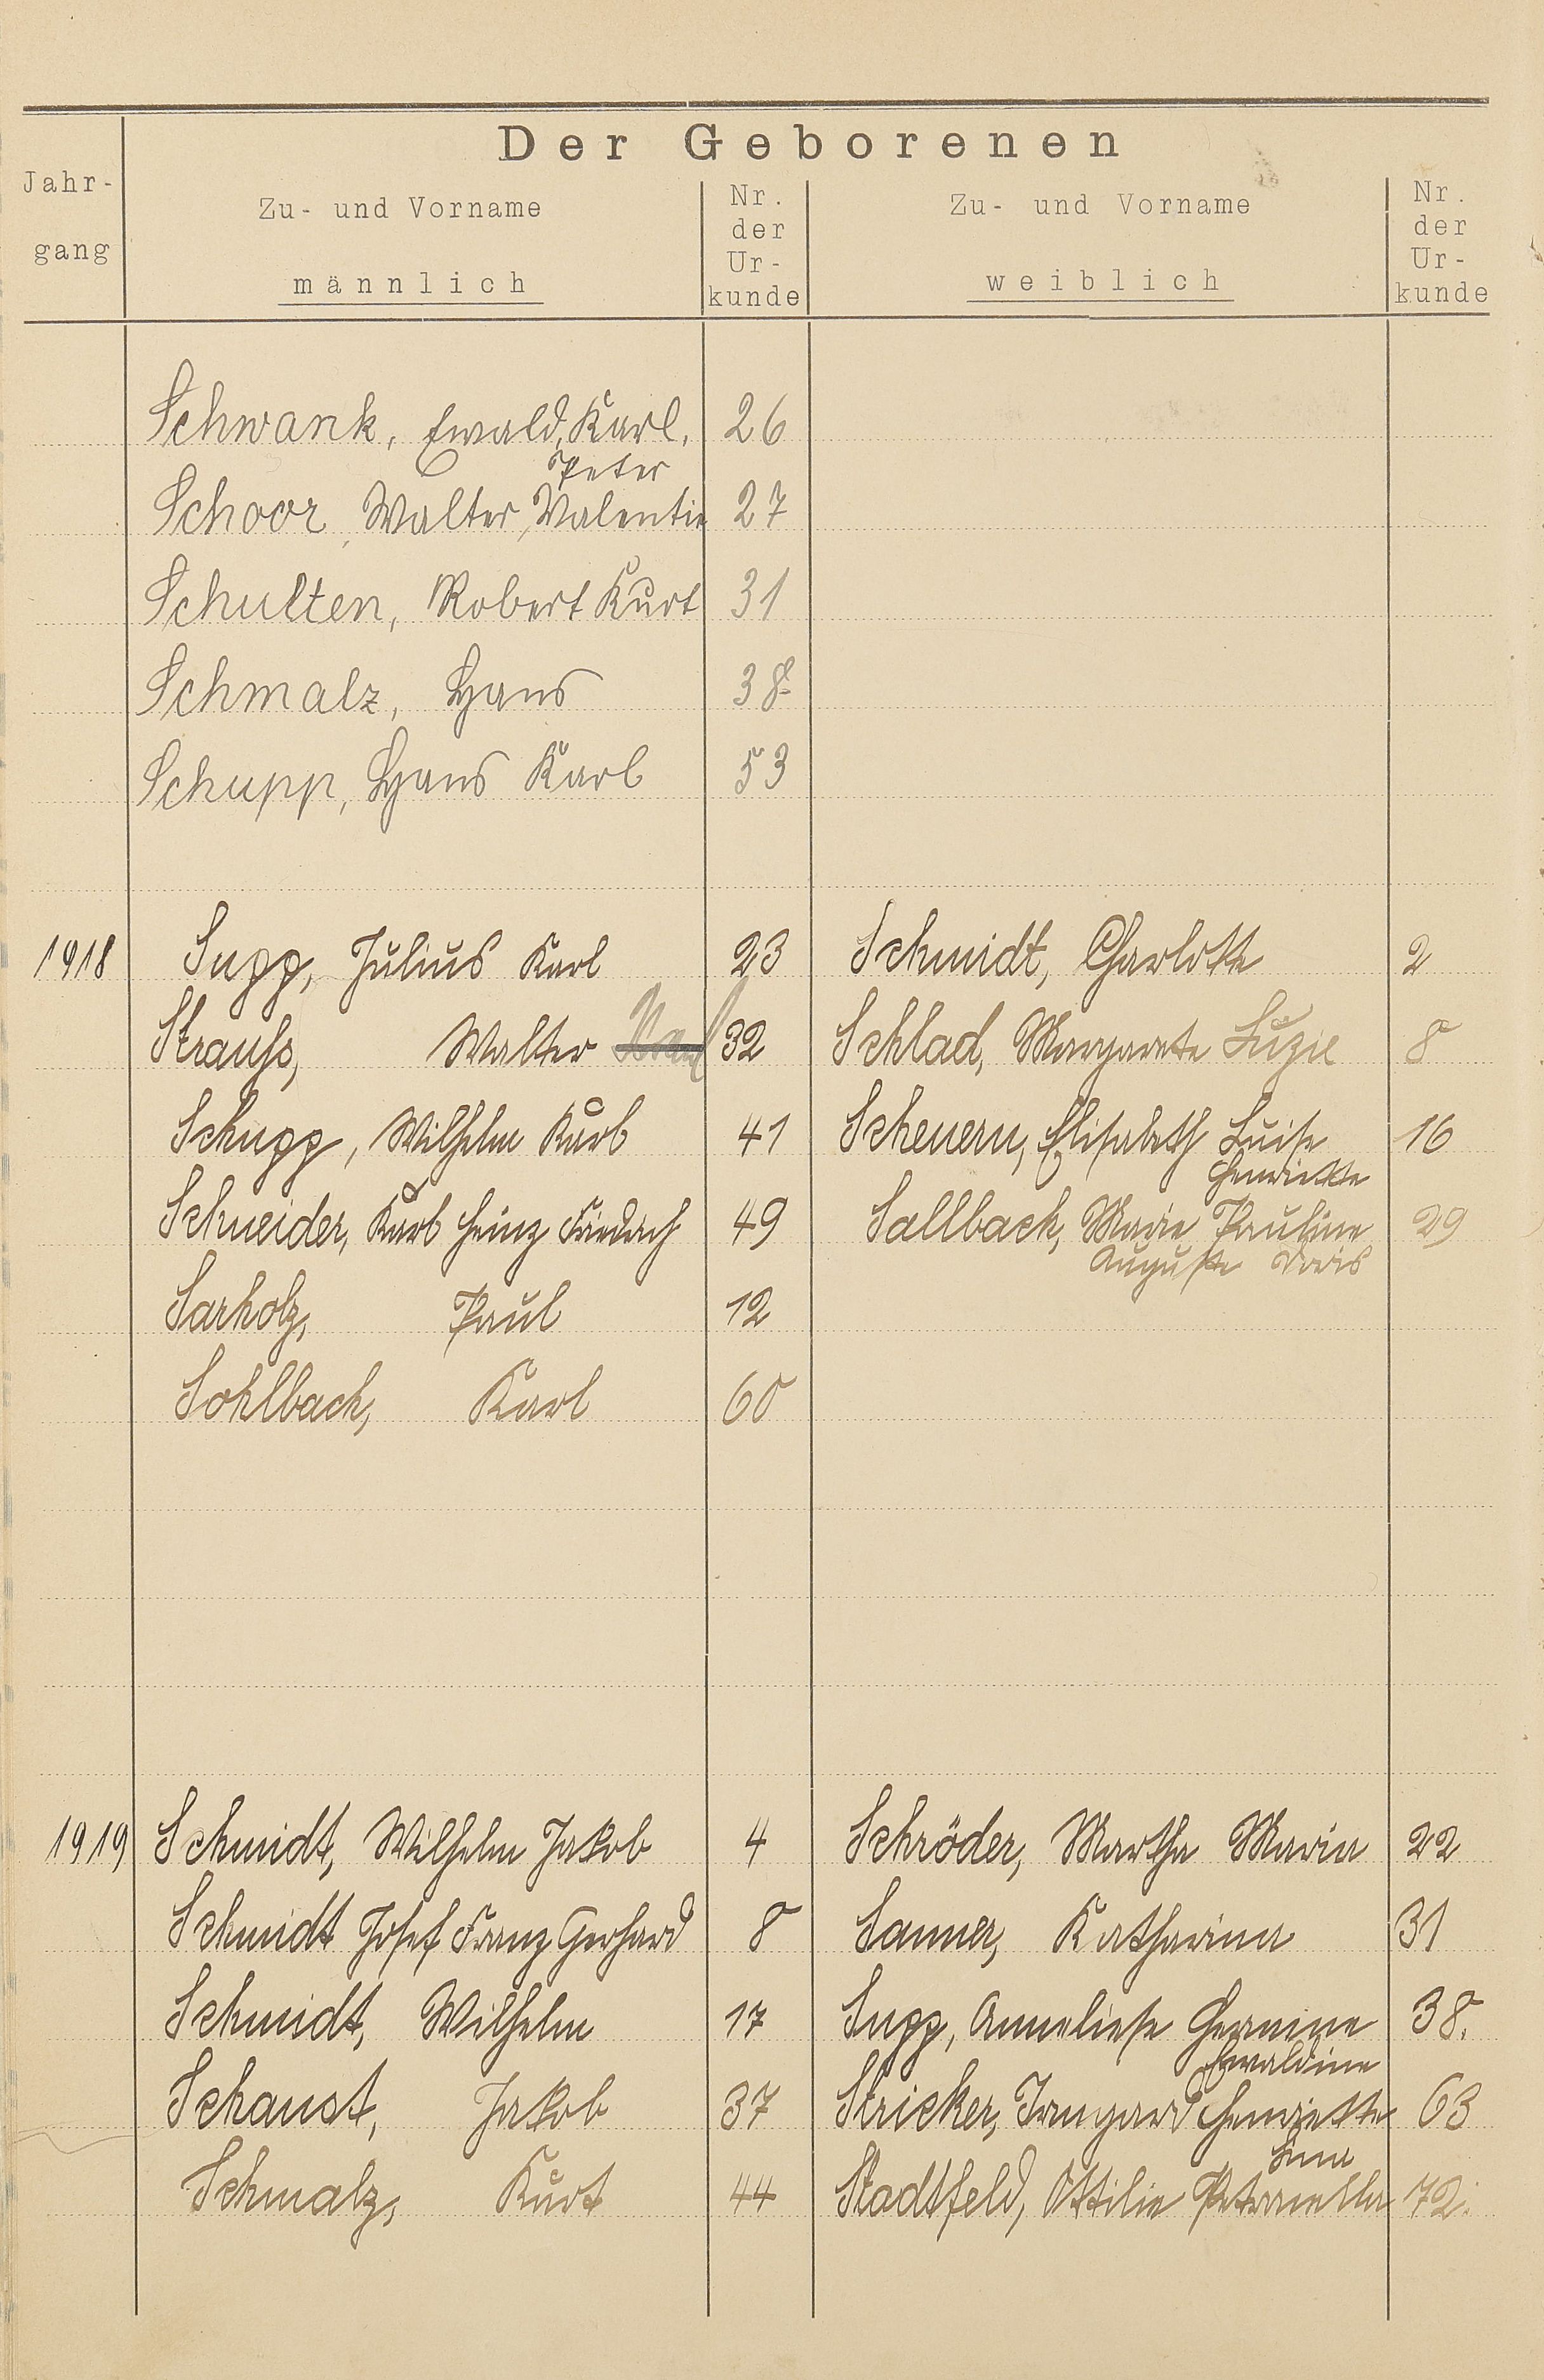 Der Geborenen
Jahr-
gang
Zu- und Vorname
männlich
Nr.
der
Ur-
kunde
Zu- und Vorname
weiblich
Nr.
der
Ur-
kunde
Schwank, Ewald, Karl, 26
Peter
Schoor, Walter, Valentin 27
Schulten, Robert Kurt 31
Schmalz, Hans 38
Schupp, Hans Karl 53
1918 Supp, Julius Karl 23 Schmidt, Charlotte 2
Strauss, Walter 32 Schlad, Margarete Luzie 8
Schupp, Wilhelm Kurt 41 Scheuern, Elisabeth Luise 16
Henriette
Schneider, Kurt Heinz Friedrich 49 Sallback, Marie Pauline 29
Auguste Doris
Sarholz, Paul 12
Sohlbach, Karl 60
1919 Schmidt, Wilhelm Jakob 4 Schröder, Martha Maria 22
Schmidt Josef Franz Gerhard 8 Sanner, Katharina 31
Schmidt, Wilhelm 17 Supp, Anneliese Hermine 38.
Ewaldine
Schaust, Jakob 37 Stricker, Irmgard Henriette 63
Schmalz, Kurt 44 Stadtfeld, Ottilie Petronella 72.